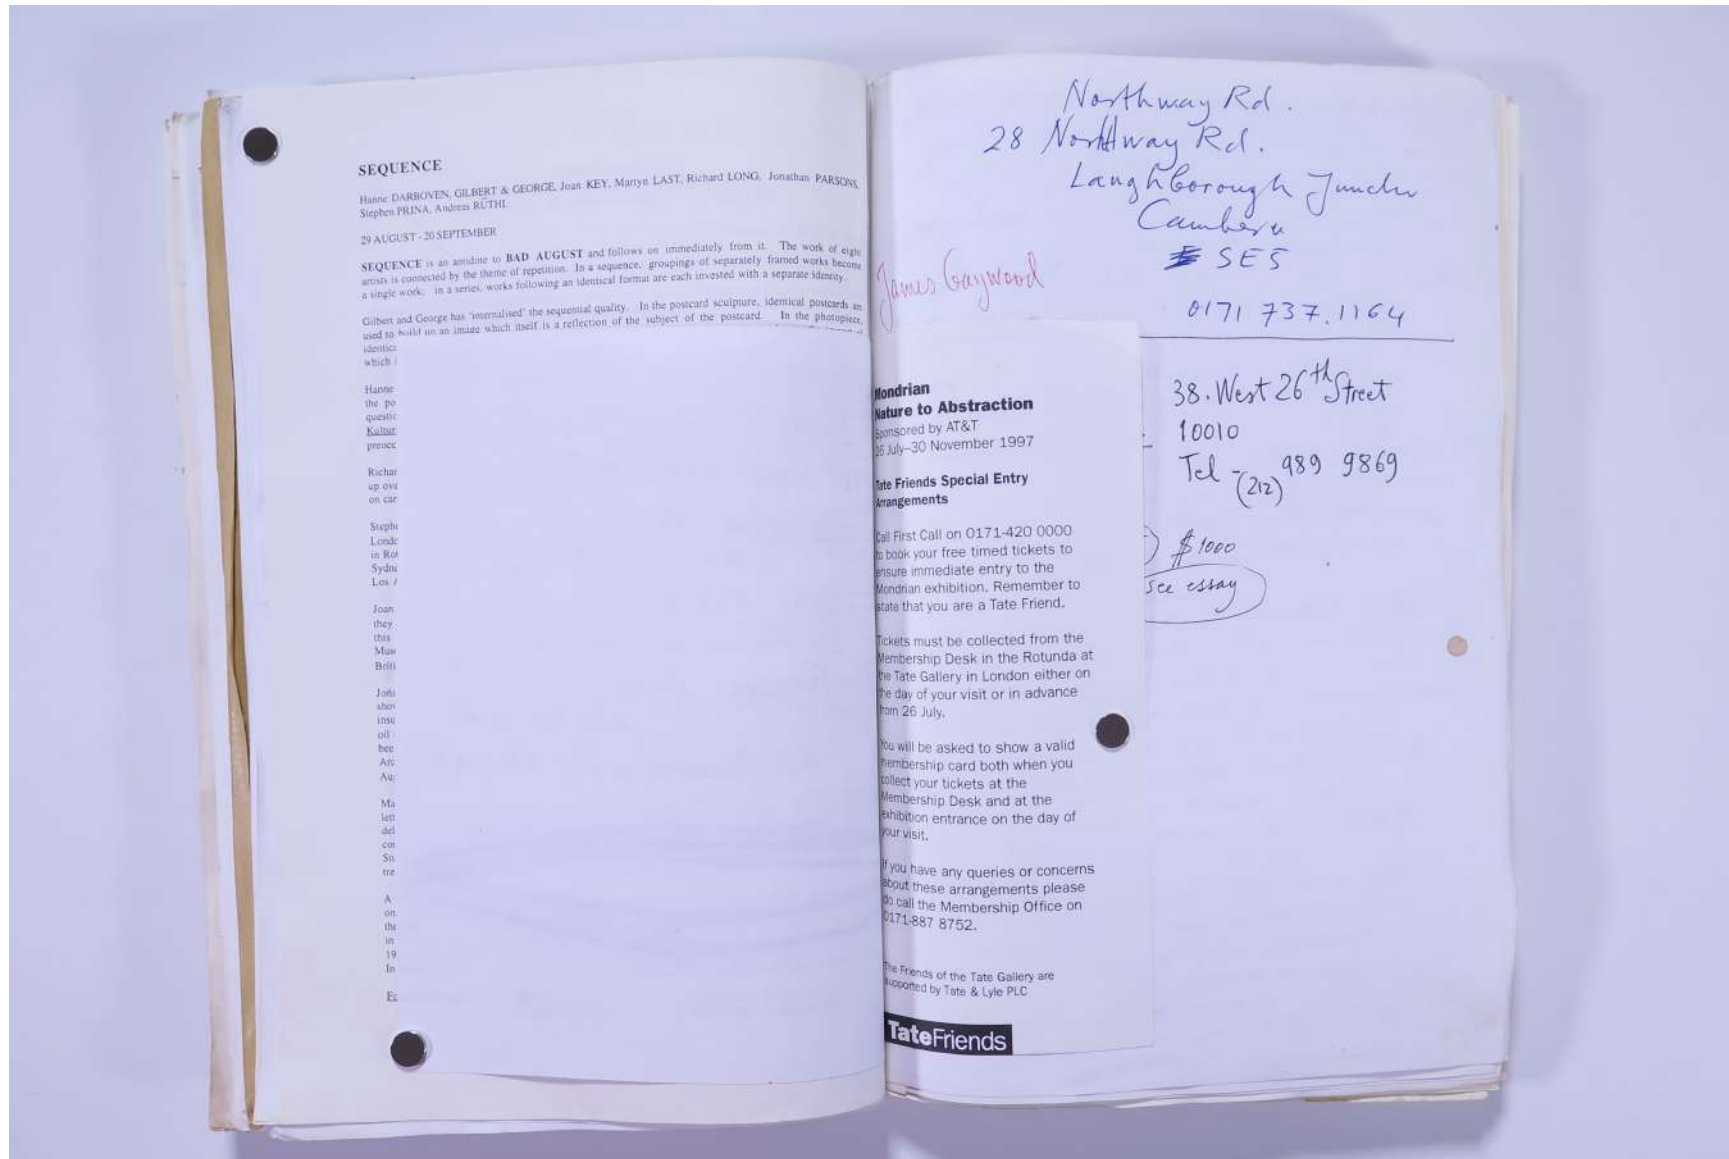 SEQUENCE
Hanne DARBOVEN, GILBERT & GEORGE, Joan KEY, Martyn LAST, Richard LONG, Jonathan PARSONS,
Stephen PRINA, Andreas RÜTHI.
29 AUGUST - 20 SEPTEMBER
SEQUENCE is an antidote to BAD AUGUST and follows on immediately from it. The work of eight
artists is connected by the theme of repetition. In a sequence, groupings of separately framed works become
a single work; in a series, works following an identical format are each invested with a separate identity.
Gilbert and George has 'internalised' the sequential quality. In the postcard sculpture, identical postcards are
used to build up an image which itself is a reflection of the subject of the postcard. In the photopiece,
identic
which
Hanne
the po
questic
Kultur
preocc
Richar
up ove
on car
Steph
Londo
in Rot
Sydne
Los A
Joan
they
this
Mus
Briti
Jona
shov
insu
oil
bee
Arc
Au
Ma
lett
del
con
Stu
tre
A
on
the
in
19
In
Northway Rd.
28 Northway Rd.
Laughborough Junctn
Camberw
SE5
James Gaywood
0171 737.1164
38. West 26th Street
10010
Tel - (212) 989 9869
) $1000
see essay
Mondrian
Nature to Abstraction
Sponsored by AT&T
26 July–30 November 1997
Tate Friends Special Entry
Arrangements
Call First Call on 0171-420 0000
to book your free timed tickets to
ensure immediate entry to the
Mondrian exhibition. Remember to
state that you are a Tate Friend.
Tickets must be collected from the
Membership Desk in the Rotunda at
the Tate Gallery in London either on
the day of your visit or in advance
from 26 July.
You will be asked to show a valid
membership card both when you
collect your tickets at the
Membership Desk and at the
exhibition entrance on the day of
your visit.
If you have any queries or concerns
about these arrangements please
do call the Membership Office on
0171-887 8752.
The Friends of the Tate Gallery are
supported by Tate & Lyle PLC
TateFriends